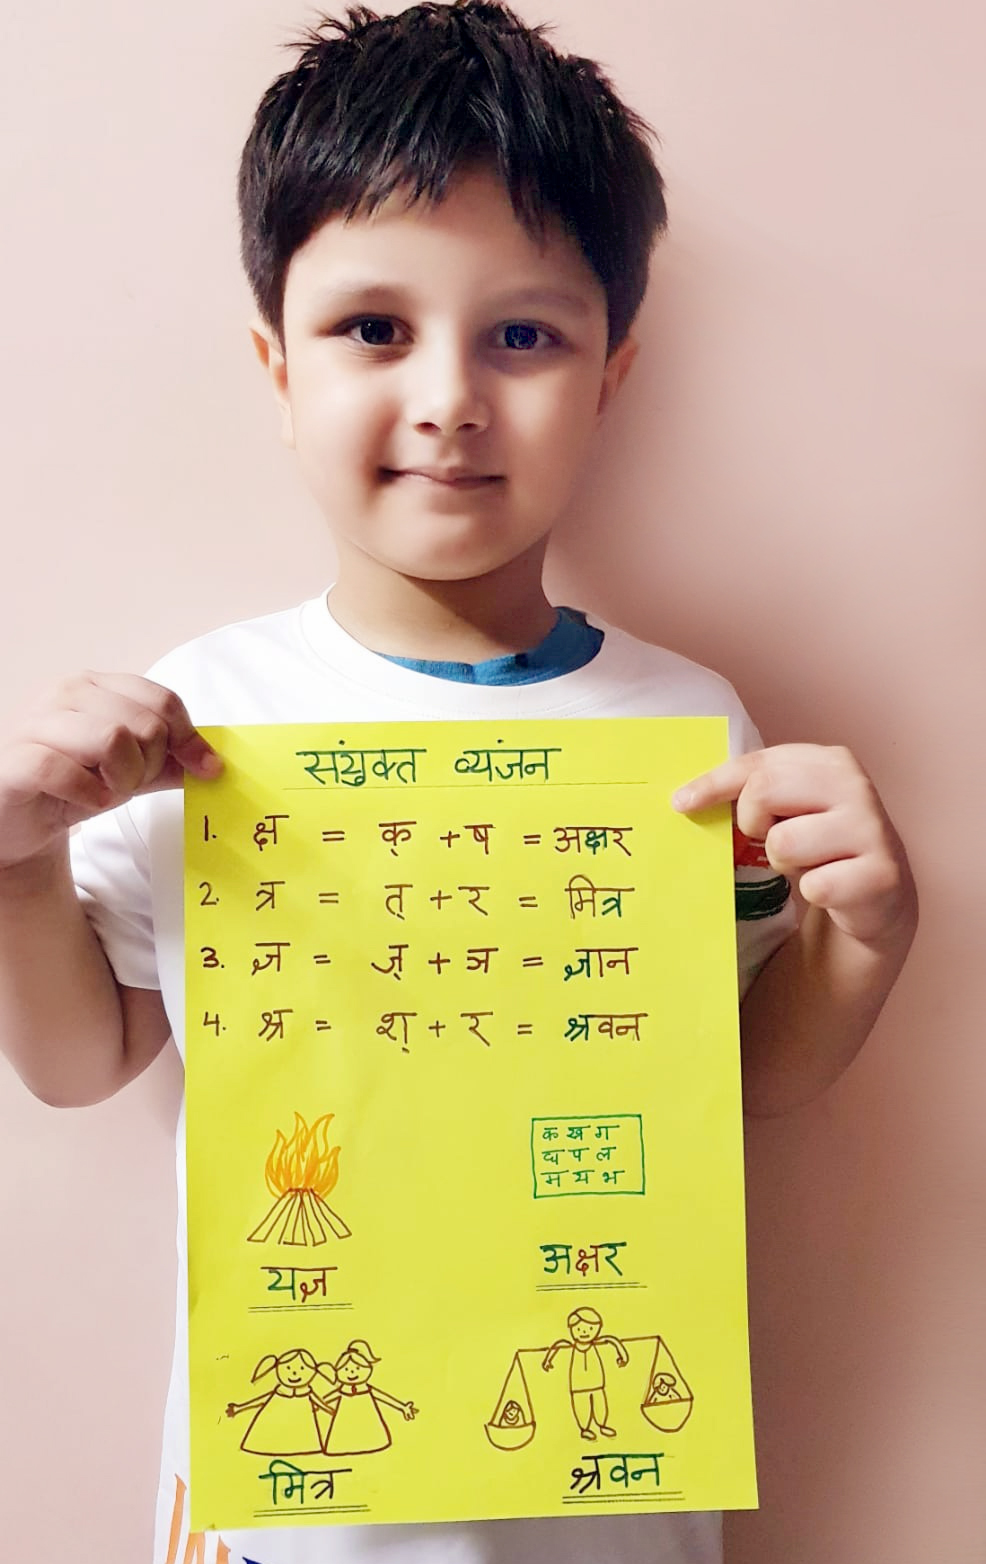 संयुक्त व्यंजन
1. क्ष = क् + ष = अक्षर
2. त्र = त् + र = मित्र
3. ज्ञ = ज् + ञ = ज्ञान
4. श्र = श् + र = श्रवन
क ख ग
घ प ल
म य भ
यज्ञ
अक्षर
मित्र
श्रवन